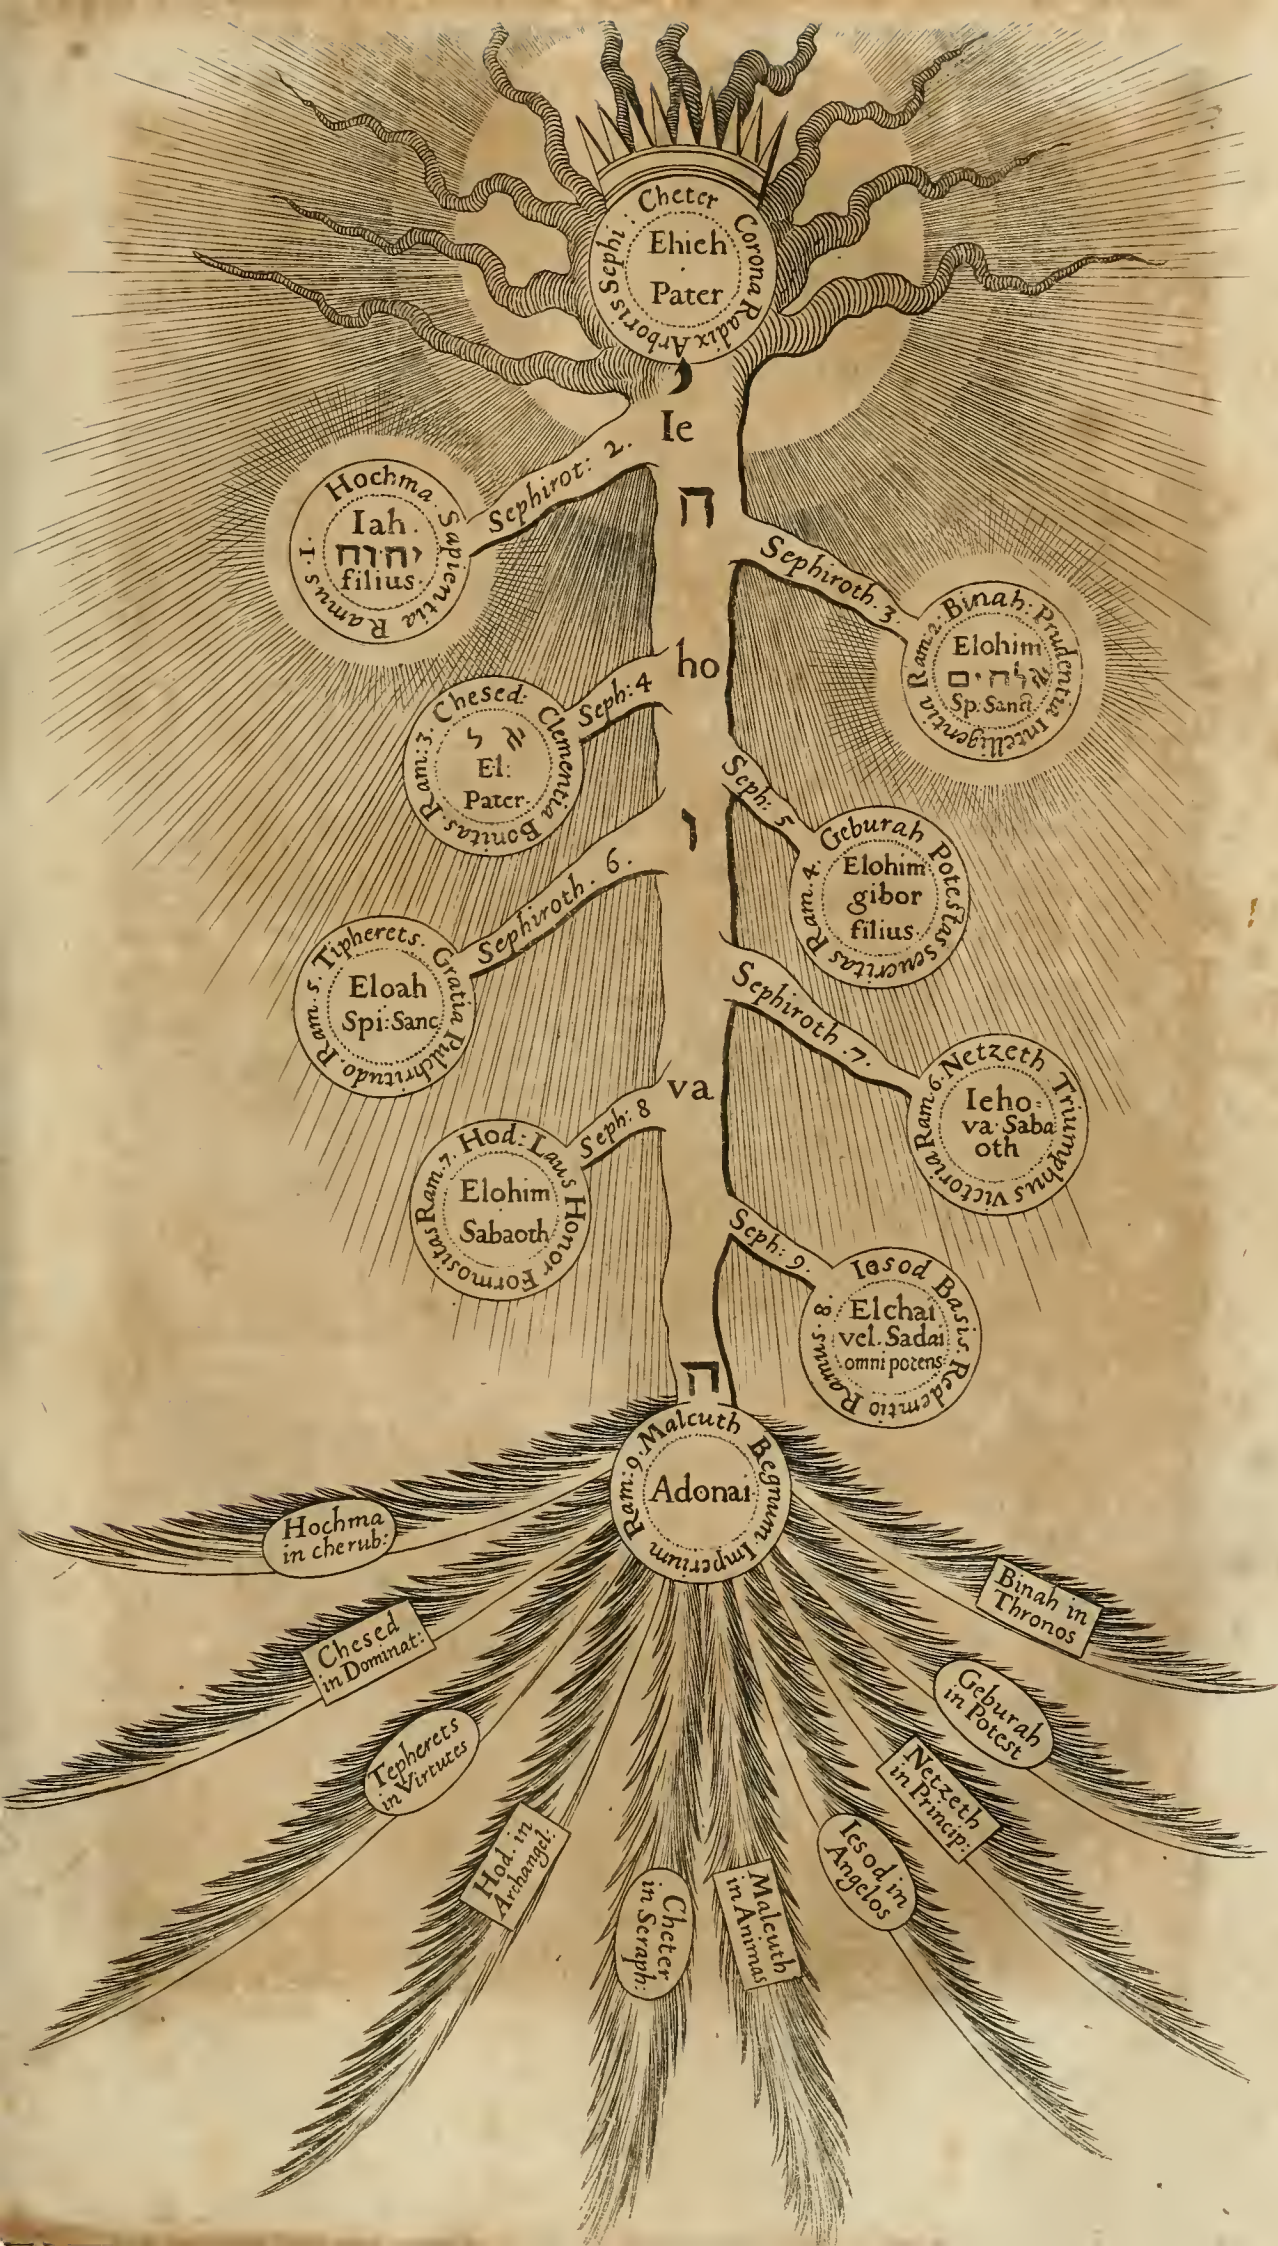 Arboris Sephi: Cheter Corona Radix
Ehieh
Pater
י
Ie
Sephirot: 2.
ה
Ramus 1. Hochma Sapientia
Iah.
יהוה
filius.
Sephiroth. 3.
Ram. 2. Binah: Prudentia Intelligentia
Elohim
אלהים
Sp. Sanct.
ho
Seph: 4
Ram: 3. Chesed: Clementia Bonitas
אל
El:
Pater.
Seph: 5
ו
Ram. 4. Geburah Potestas severitas
Elohim
gibor
filius.
Sephiroth. 6.
Ram. 5. Tipherets. Gratia Pulchritudo.
Eloah
Spi: Sanc
Sephiroth. 7.
Ram. 6. Netzeth Triumphus Victoria
Ieho=
va. Saba
oth
va
Seph: 8
Ram. 7. Hod: Laus Honor Formositas
Elohim
Sabaoth
Seph: 9.
Ramus. 8. Iesod Basis. Redemtio
Elchai
vel. Sadai
omnipotens
ה
Ram: 9. Malcuth Regnum. Imperium
Adonai.
Hochma
in cherub:
Chesed
in Dominat:
Tepherets
in Virtutes
Hod. in
Archangel:
Cheter
in Seraph:
Malcuth
in Animas
Iesod in
Angelos
Netzeth
in Princip:
Geburah
in Potest
Binah in
Thronos